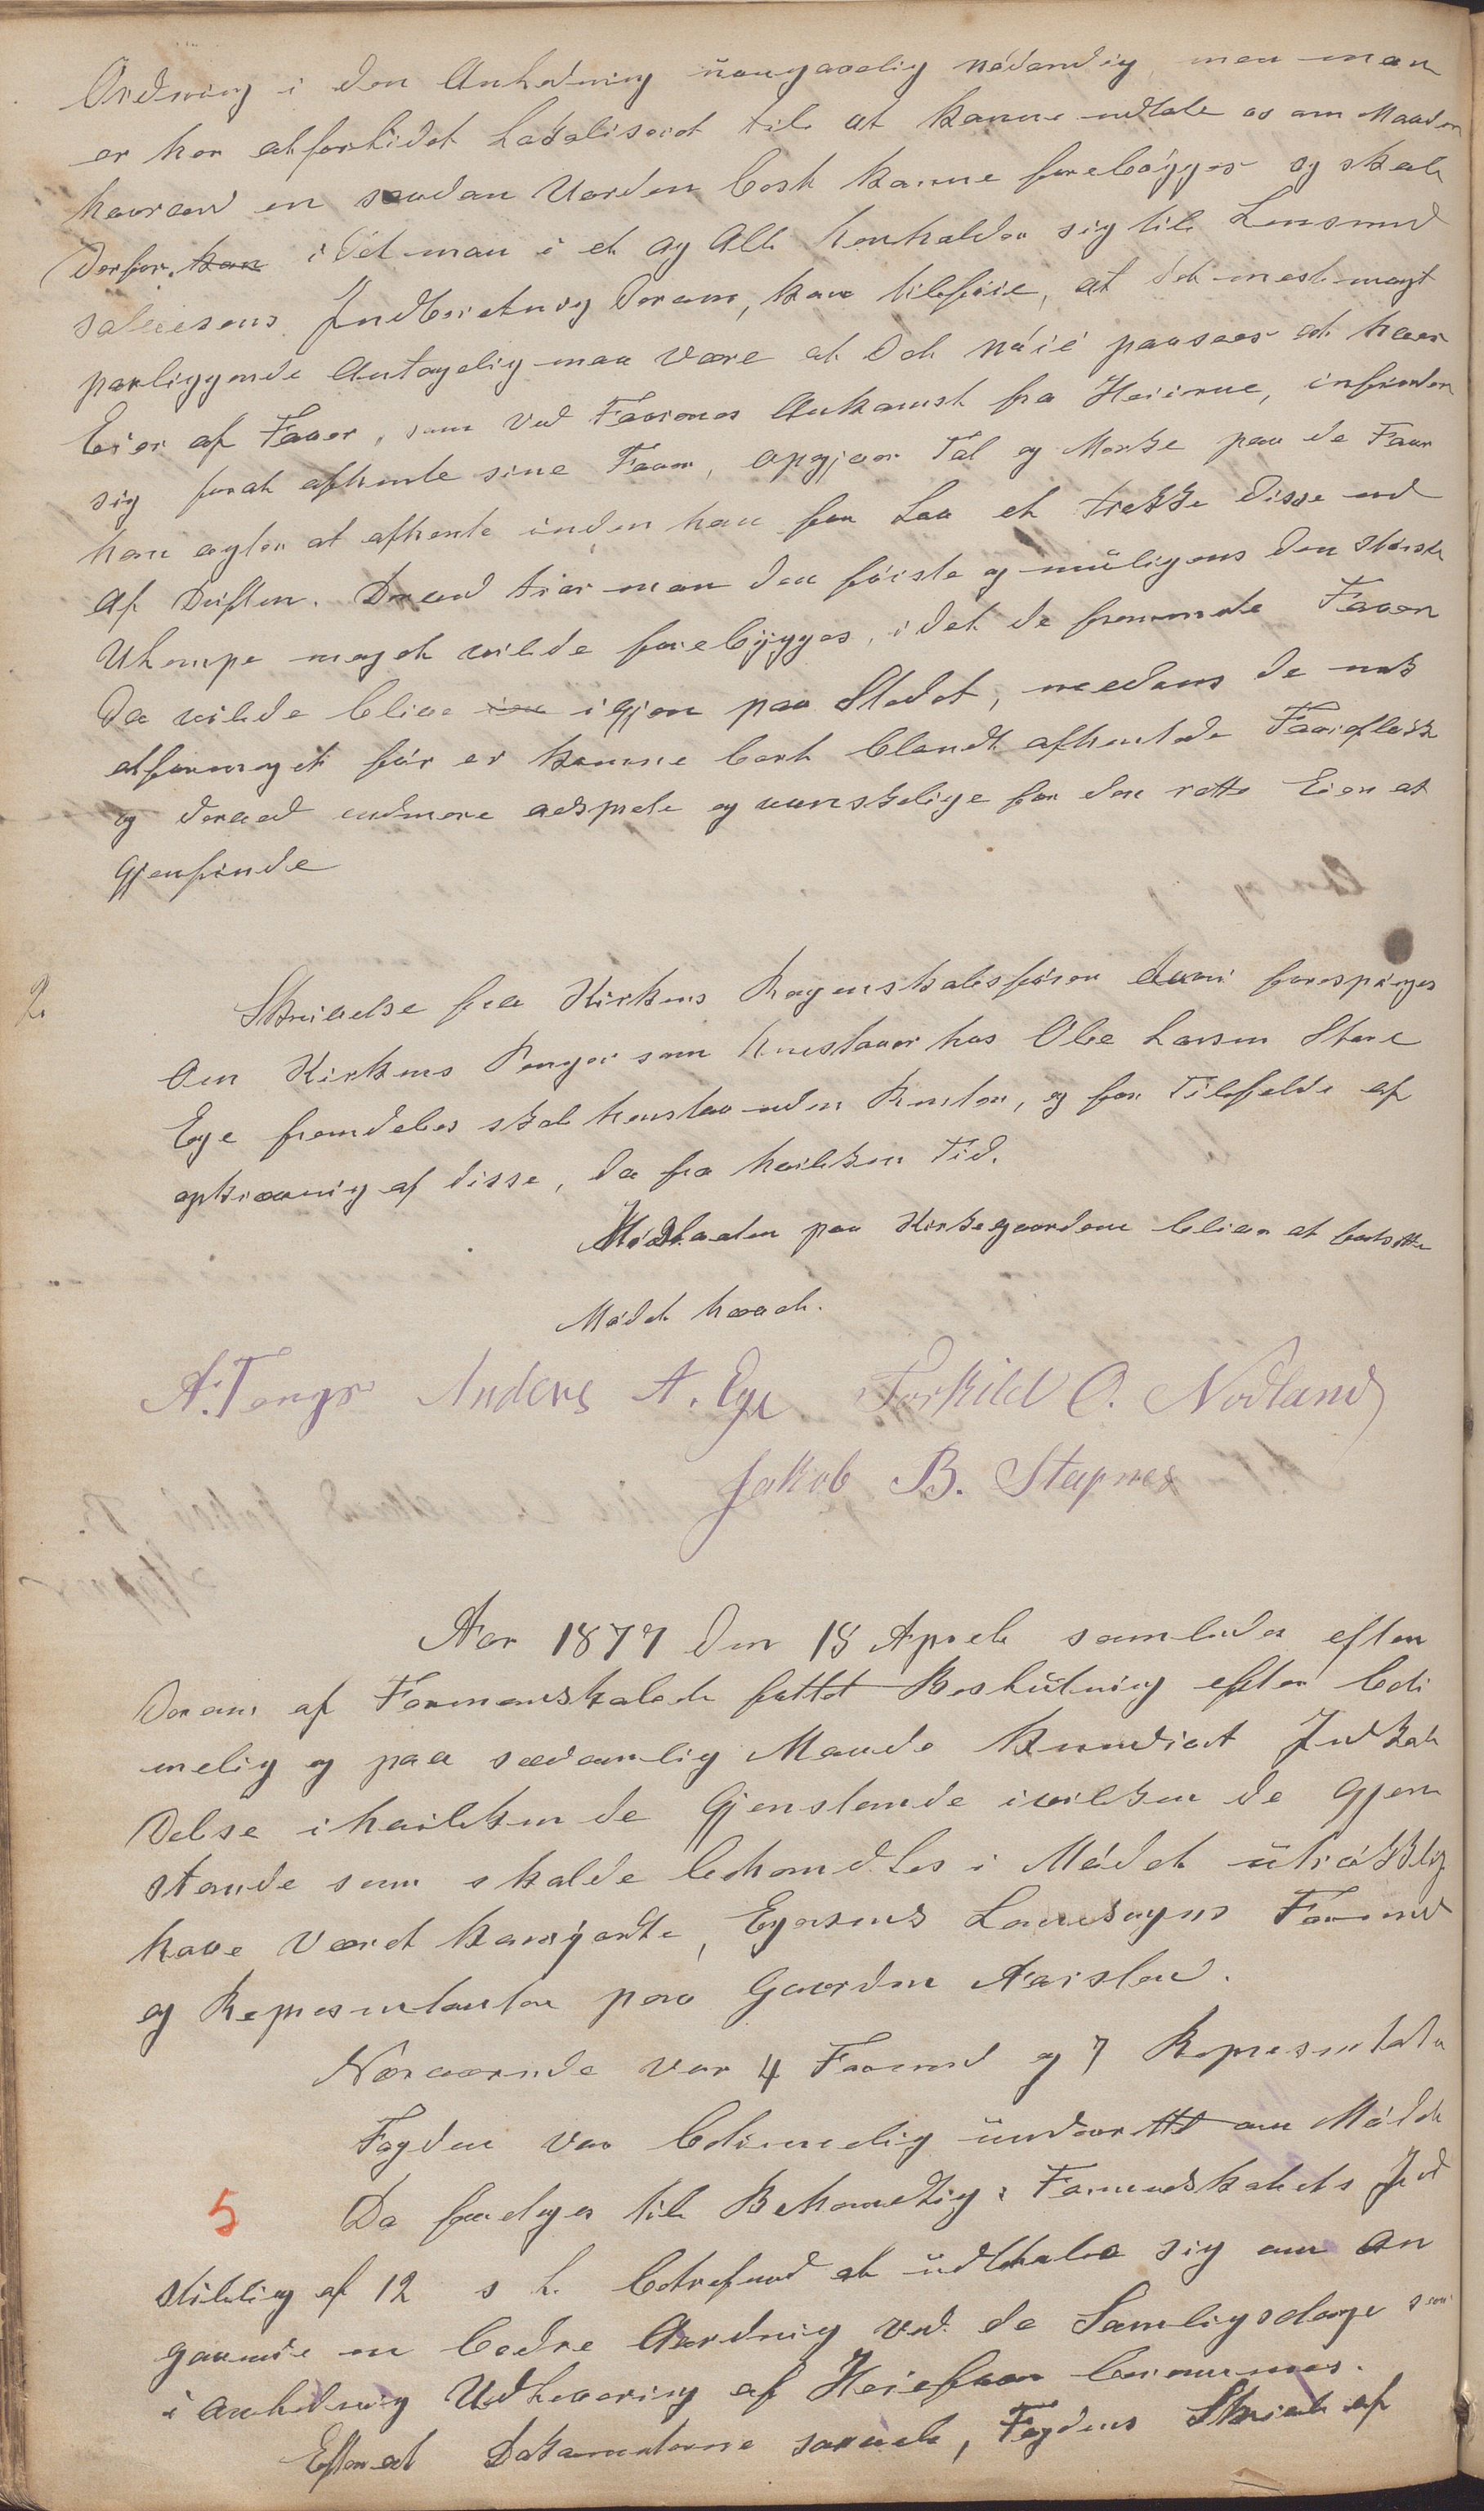 Ordning i den Anledning uungaaelig nødendig, men man
er her altforlidet Lokaliseret til at kunne udtale os om Maaden
hvorved en saadan Uorden best kunne forebøygges og skal
derfor kan idet man i et og Alt henholder sig til Lensmd
Indberetning derom, kan tilføie, at det mest
paaliggende Antagelig maa være at det nøie paasees at hver
Eier af Faaer, som ved Faarenes Ankomst fra Heierne, infinder
sig forat afhente sine Faar, opgjiver Tal og Merke paa de Faar
han agter at afhente inden han faar Lov at trekke disse ud
af Driften. Derved tror man den første og muligens den største
Ulempe meget vilde forebygges, idet de fremmede Faaer
da vilde blive igjen paa Stedet, medens de nok
altformeget før er komne bort blandt afhentede Faareflokk
og derved endmere adspredte og vanskelige for den rette Eier at
Gjenfinde
2. Skrivelse fra Kirkens Regenskabsfører hvori forespørges
Om Kirkens Penger som henstaaer hos Ole Larsen Store
Ege fremdeles skal henstaa uden Renter, og for Tilfelde af
opkrævning af disse, da fra hvilken Tid.
paa Kirkegaarden bliver at bortsette
Mødet hævet.
A. Tengs Anders A. Ege Torkild O. Nodland
Jakob B. Stapnes
Aar 1877 den 18 April samledes efter
derom af Formenskabet fattet Beslutning efter beti
melig og paa sædvanlig Maade kundgiort Indkal
delse i hvilken de Gjenstande i vilken de Gjen
stande som skulde behandles i Mødet utrøkklig
have været kungjorte, Egersunds Landsogns Formd
og Representanter paa Gaarden Aarstad.
Nærværende var 4 Formd og 7 Representater
Fogden var betimelig underrettet om Mødet
5 Da foretoges til Behandlig: Formendskabets Ind
stilling af 12 s L. betrefend at udtale sig om an
gaaende en bedre Ordning ved de Samligsdage som
i Anledning Udlevering af Heiefaar berammes.
Efterat Dokumenterne samt, Fogdens Skriv af